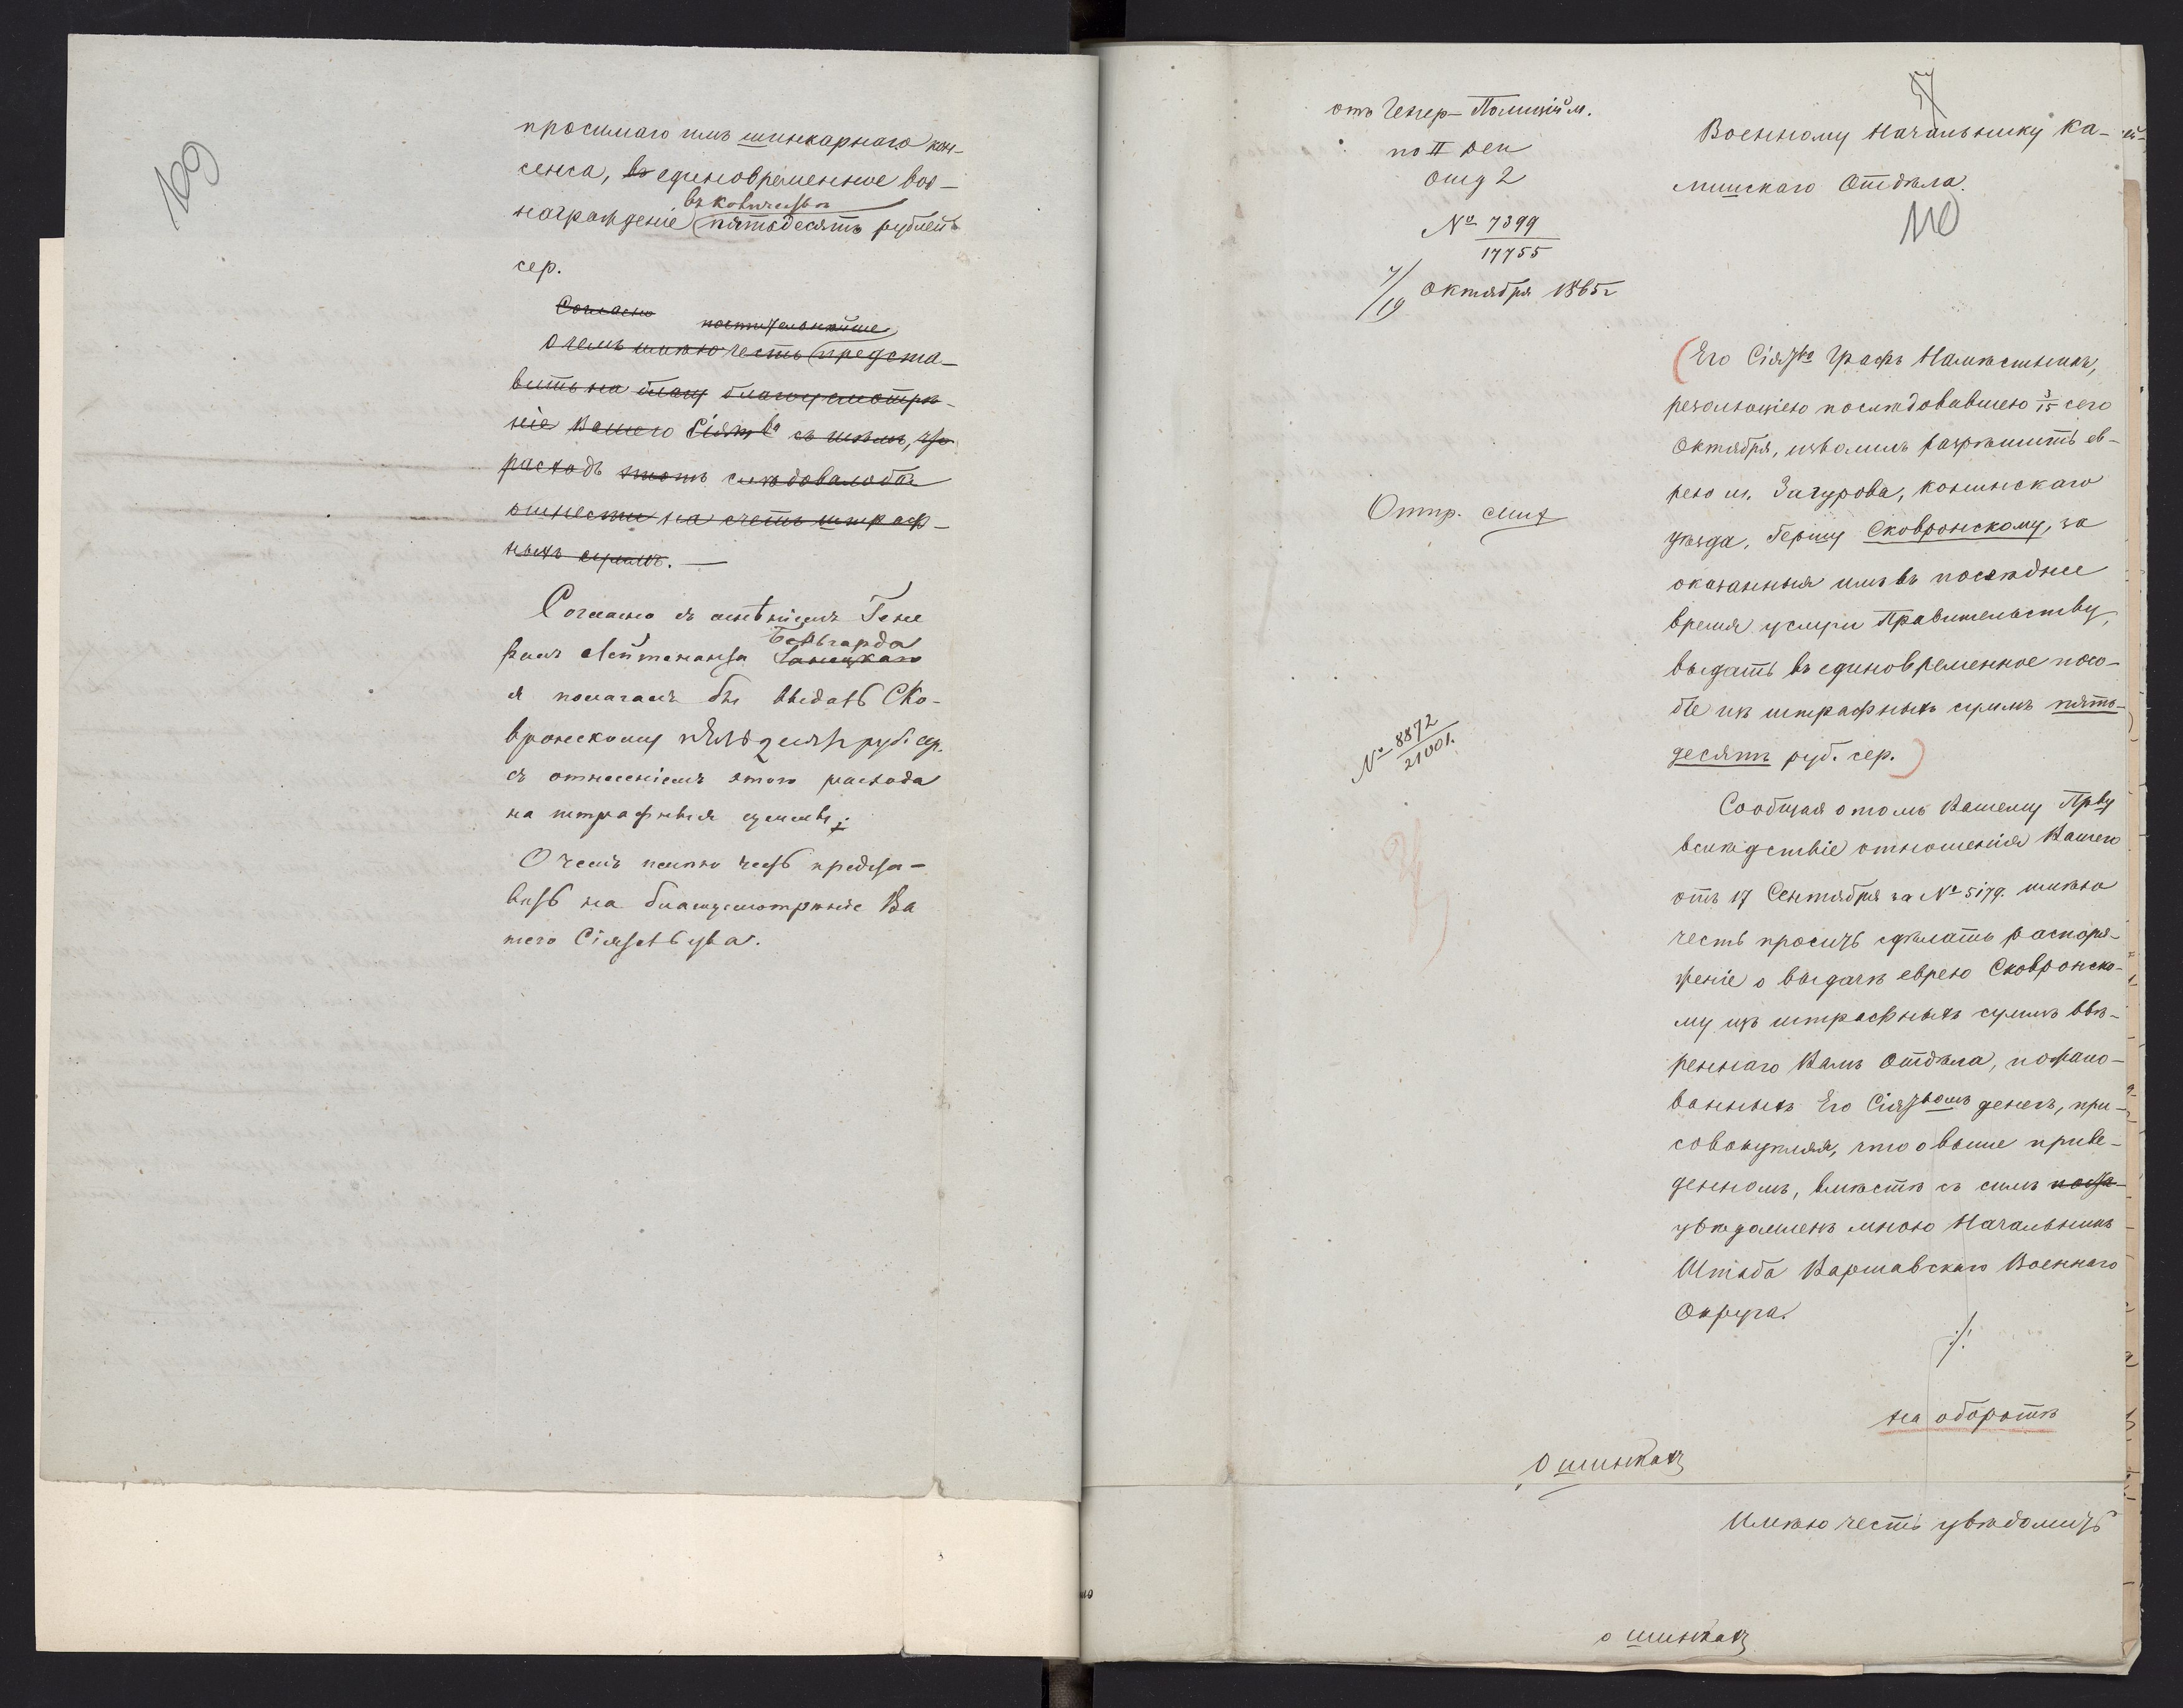 109
просимаго имъ шинкарнаго кон-
сенса, въ единовременное воз-
въ количествѣ
награжденіе пятьдесятъ рублей
сер.
Согласно
почтительнѣйше
О чемъ имѣю честь предста-
вить на благ благоусмотрѣ-
ніе Вашего Сіят-ва съ тѣмъ, что
расходъ этотъ слѣдовало бы
отнести на счетъ штраф-
ныхъ суммъ.
Согласно съ мнѣніемъ Гене
Бельгарда
ралъ Лейтенанта Ганецкаго
я полагалъ бы выдать Ско-
вронскому пятьдесятъ руб. сер.
съ отнесеніемъ этого расхода
на штрафныя суммы;
О чемъ имѣю честь предста-
вить на благоусмотрѣніе Ва
шего Сіятельства.
57
отъ Генер-Полицій м.
по II Отд
отд 2
№ 7399
17755
7/19 Октября 1865 г
Военному Начальнику Ка-
лишскаго Отдѣла.
110
Его Сіят-во Графъ Намѣстникъ,
резолюціею послѣдовавшею 3/15 сего
Октября, изволилъ разрѣшить ев-
рею м. Загурова, конинскаго
уѣзда, Гершу Сковронскому, за
оказанныя имъ въ послѣднее
время услуги Правительству,
выдать въ единовременное посо-
біе изъ штрафныхъ суммъ пять-
десятъ руб. сер.
Отпр. смот
№ 8872
21001.
Сообщая о томъ Вашему Пр-ву
вслѣдствіе отношенія Вашего
отъ 17 Сентября за № 5179. имѣю
честь просить сдѣлать распоря-
женіе о выдачѣ еврею Сковронско-
му изъ штрафныхъ суммъ ввѣ-
реннаго Вамъ Отдѣла, пожало-
ванныхъ Его Сіят-вомъ денегъ, при-
совокупляя, что о выше приве-
денномъ, вмѣстѣ съ симъ поста-
увѣдомленъ мною Начальникъ
Штаба Варшавскаго Военнаго
Округа.
./.
на оборотѣ
О шинкахъ
Имѣю честь увѣдомить
о шинкахъ